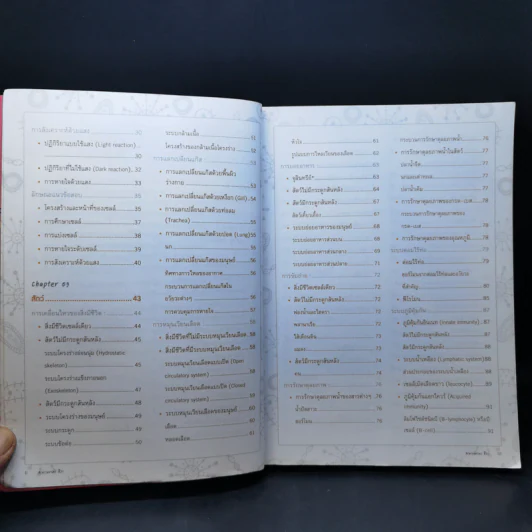 การสังเคราะห์ด้วยแสง 30
• ปฏิกิริยาแบบใช้แสง (Light reaction)
30
• ปฏิกิริยาที่ไม่ใช้แสง (Dark reaction) 32
• การหายใจด้วยแสง 33
35
• โครงสร้างและหน้าที่ของเซลล์ 35
• การศึกษาเซลล์ 37
• การแบ่งเซลล์ 38
• การหายใจระดับเซลล์ 39
• การสังเคราะห์ด้วยแสง 40
Chapter 03
สัตว์ 43
การเคลื่อนไหวของสิ่งมีชีวิต 44
• สิ่งมีชีวิตเซลล์เดียว 44
• สัตว์ไม่มีกระดูกสันหลัง 45
ระบบโครงร่างของเหลว (Hydrostatic
skeleton) 45
ระบบโครงร่างแข็งภายนอก
(Exoskeleton) 47
• สัตว์มีกระดูกสันหลัง 48
• ระบบโครงร่างของมนุษย์ 49
ระบบกระดูก 49
ระบบข้อต่อ 50
ระบบกล้ามเนื้อ 51
โครงสร้างของกล้ามเนื้อโครงร่าง 52
การแลกเปลี่ยนแก๊ส 53
• การแลกเปลี่ยนแก๊สด้วยพื้นผิว
ร่างกาย 53
• การแลกเปลี่ยนแก๊สด้วยเหงือก (Gill) 54
• การแลกเปลี่ยนแก๊สด้วยท่อลม
(Trachea) 55
• การแลกเปลี่ยนแก๊สด้วยปอด (Lung)
นก 55
• การแลกเปลี่ยนแก๊สของมนุษย์ 56
ทิศทางการไหลของอากาศ 56
กระบวนการแลกเปลี่ยนแก๊สใน
อวัยวะต่างๆ 57
การควบคุมการหายใจ 57
การหมุนเวียนเลือด
• สิ่งมีชีวิตที่ไม่มีระบบหมุนเวียนเลือด 58
• สิ่งมีชีวิตที่มีระบบหมุนเวียนเลือด 58
ระบบหมุนเวียนเลือดแบบเปิด (Open
circulatory system) 58
ระบบหมุนเวียนเลือดแบบปิด (Closed
circulatory system)
• ระบบหมุนเวียนเลือดของมนุษย์ 60
เลือด 60
หลอดเลือด 61
หัวใจ 61
รูปแบบการไหลเวียนของเลือด 62
การย่อยอาหาร 63
• จุลินทรีย์ 63
• สัตว์ไม่มีกระดูกสันหลัง 64
• สัตว์มีกระดูกสันหลัง 67
สัตว์เคี้ยวเอื้อง 67
• ระบบย่อยอาหารของมนุษย์ 68
ระบบย่อยอาหารส่วนบน 68
ระบบย่อยอาหารส่วนกลาง
ระบบย่อยอาหารส่วนล่าง
การขับถ่าย 72
• สิ่งมีชีวิตเซลล์เดียว 72
• สัตว์ไม่มีกระดูกสันหลัง 72
ฟองน้ำและไฮดรา 72
พลานาเรีย 73
ไส้เดือนดิน 73
แมลง 74
• สัตว์มีกระดูกสันหลัง 74
คน 74
การรักษาดุลยภาพ 75
• การรักษาดุลยภาพน้ำของสารต่างๆ 76
น้ำปัสสาวะ 76
ฮอร์โมน 76
กระบวนการรักษาดุลยภาพน้ำ 76
• การรักษาดุลยภาพน้ำในสัตว์ 77
ปลาน้ำจืด
นกและเต่าทะเล
ปลาน้ำเค็ม
• การรักษาดุลยภาพของกรด-เบส
กระบวนการรักษาดุลยภาพของ
กรด-เบส
• การรักษาดุลยภาพของอุณหภูมิ
• ต่อมไร้ท่อ
ฮอร์โมนจากต่อมไร้ท่อและอวัยวะ
ที่สำคัญ
• ฟีโรโมน
ระบบภูมิคุ้มกัน 87
• ภูมิคุ้มกันที่มีแต่แรก (Innate immunity) 87
สัตว์ไม่มีกระดูกสันหลัง
สัตว์มีกระดูกสันหลัง
• ระบบน้ำเหลือง (Lymphatic system) 88
ส่วนประกอบของระบบน้ำเหลือง
• เซลล์เม็ดเลือดขาว (Leucocyte)
• ภูมิคุ้มกันแบบจำเพาะ (Acquired
immunity) 91
ลิมโฟไซต์ชนิดบี (B-lymphocyte) หรือบี
เซลล์ (B-cell)